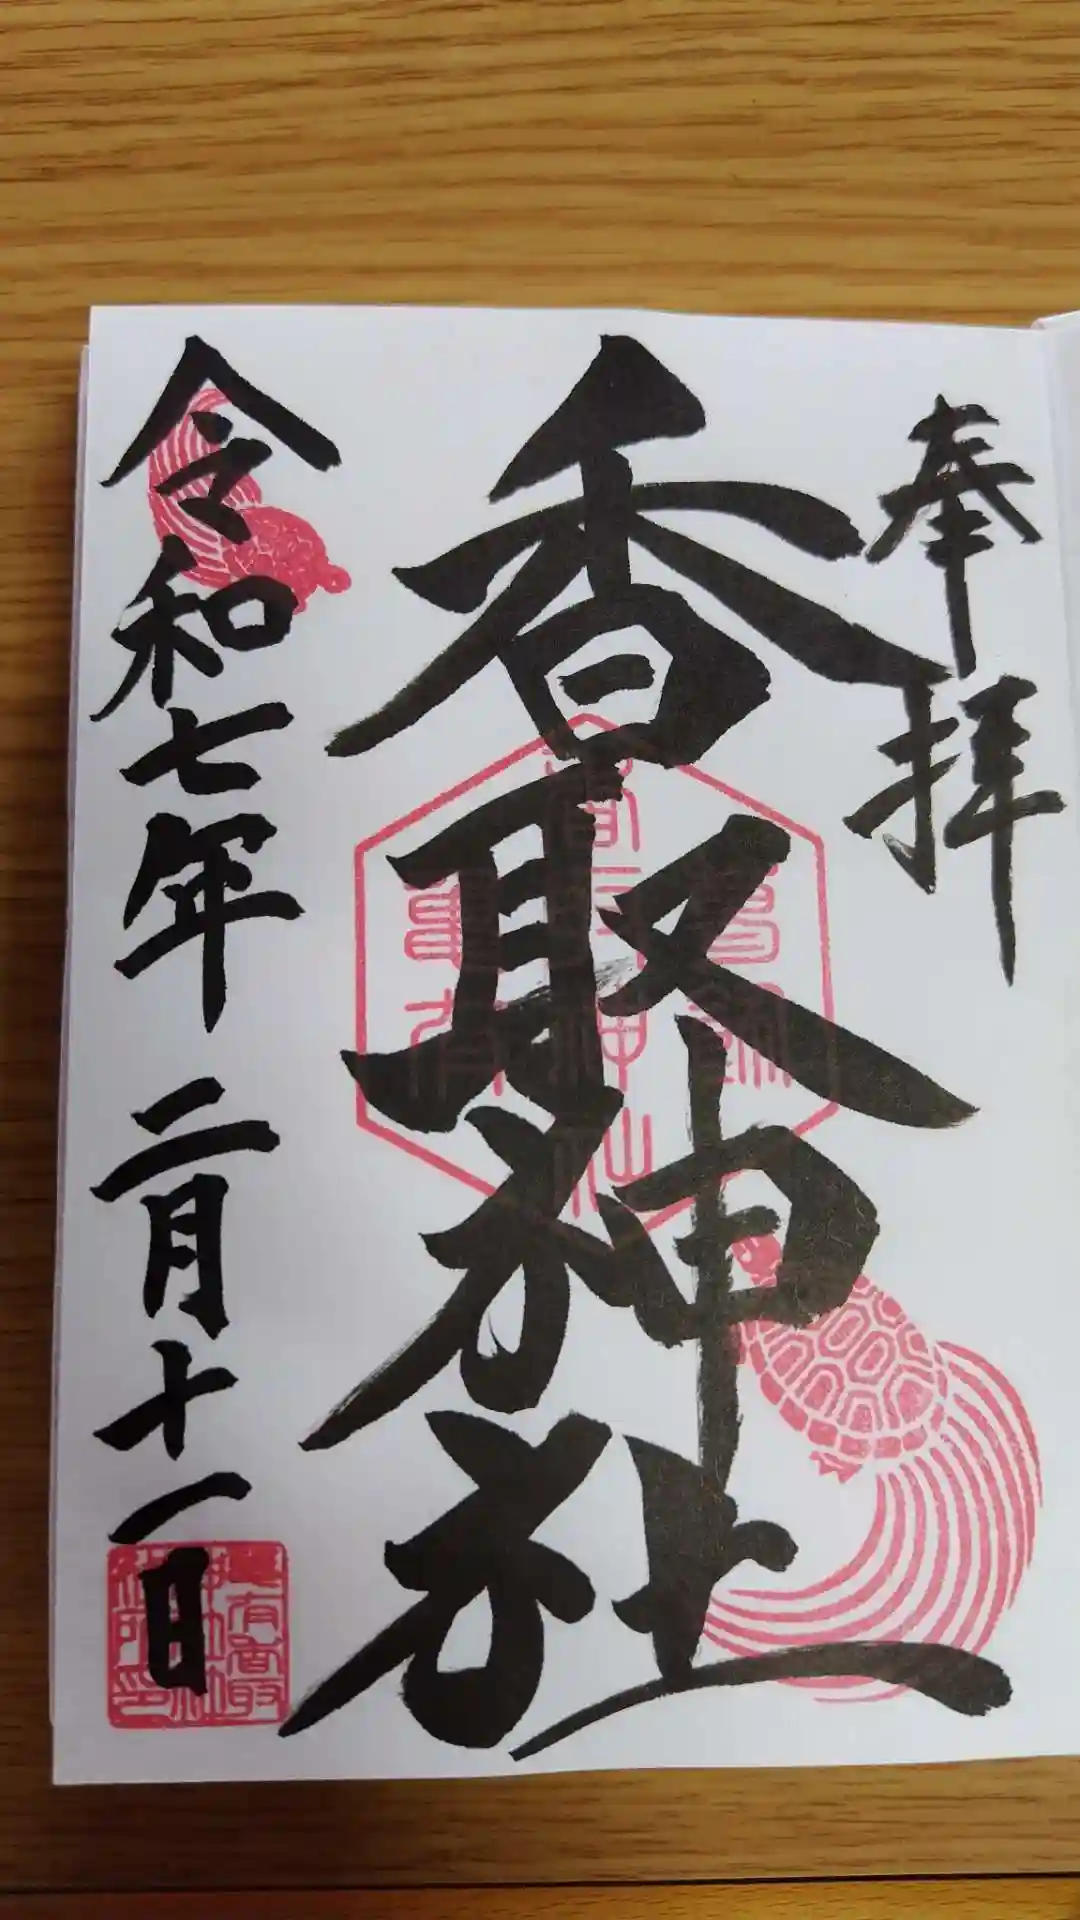 奉拝
香取神社
令和七年 二月十一日